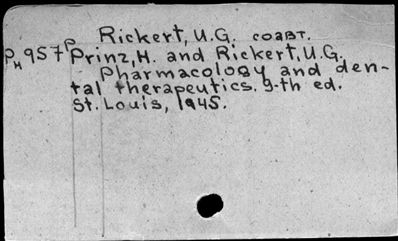 Rickert, U.G. соавт.
Рн957р Prinz, H. and Rickert, U.G.
Pharmacology and den-
tal therapeutics. 9-th ed.
St. Louis, 1945.